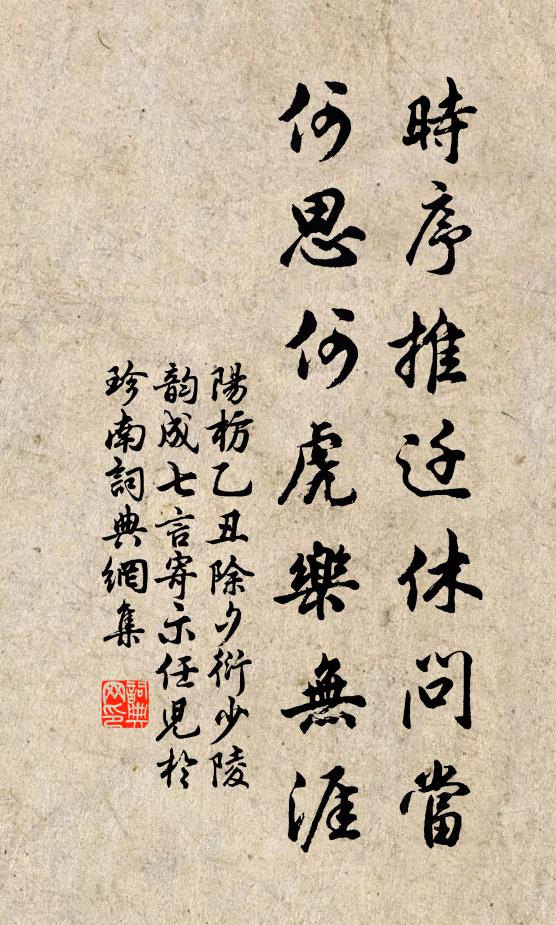 時序推迁休問當
何思何虑樂無涯
陽枋乙丑除夕衍少陵
韵成七言寄示任兒於
珍南詞典網集
詞典網印